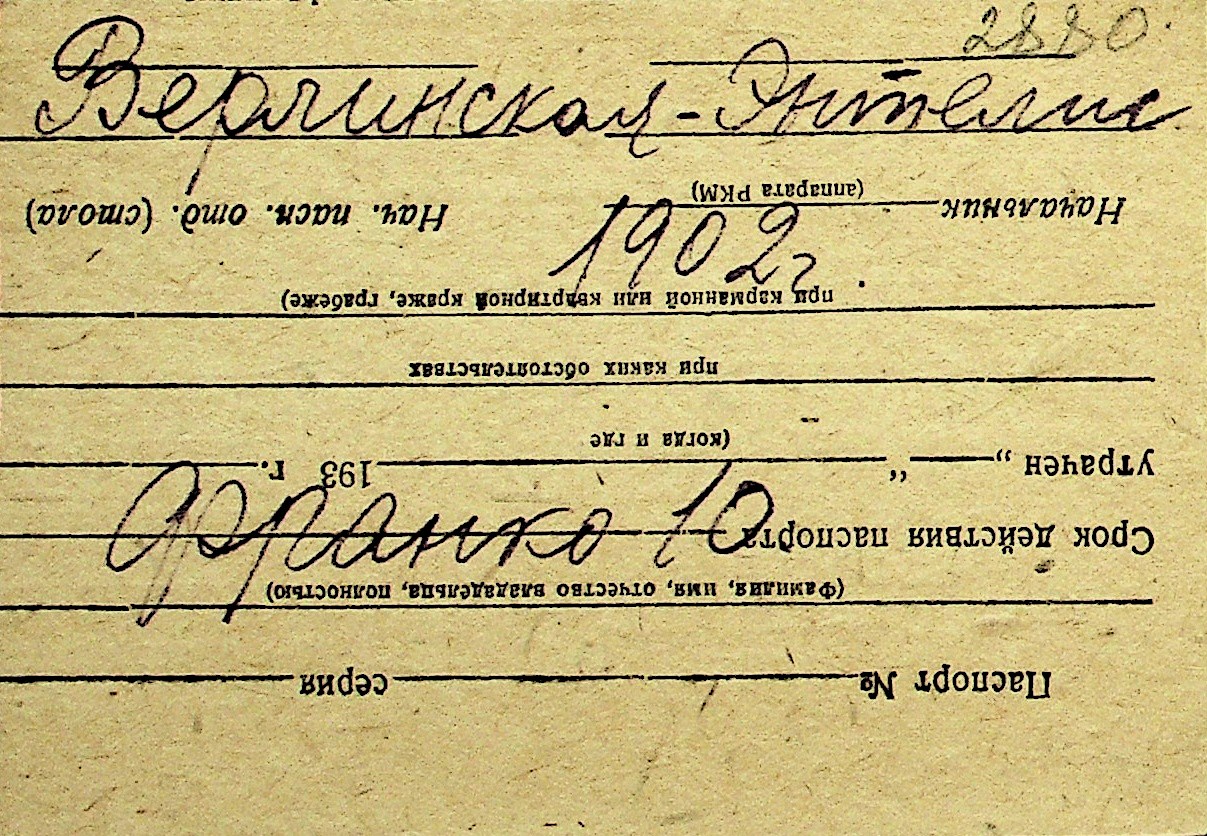 2880.
Верлинская-Энтелис
1902 г.
Франко 10
Паспорт № серия
(фамилия, имя, отчество владельца, полностью)
Срок действия паспорта
утрачен „ “ 193 г.
(когда и где
при каких обстоятельствах
при карманной или квартирной краже, грабеже)
Начальник Нач. пасп. отд. (стола)
(аппарата РКМ)